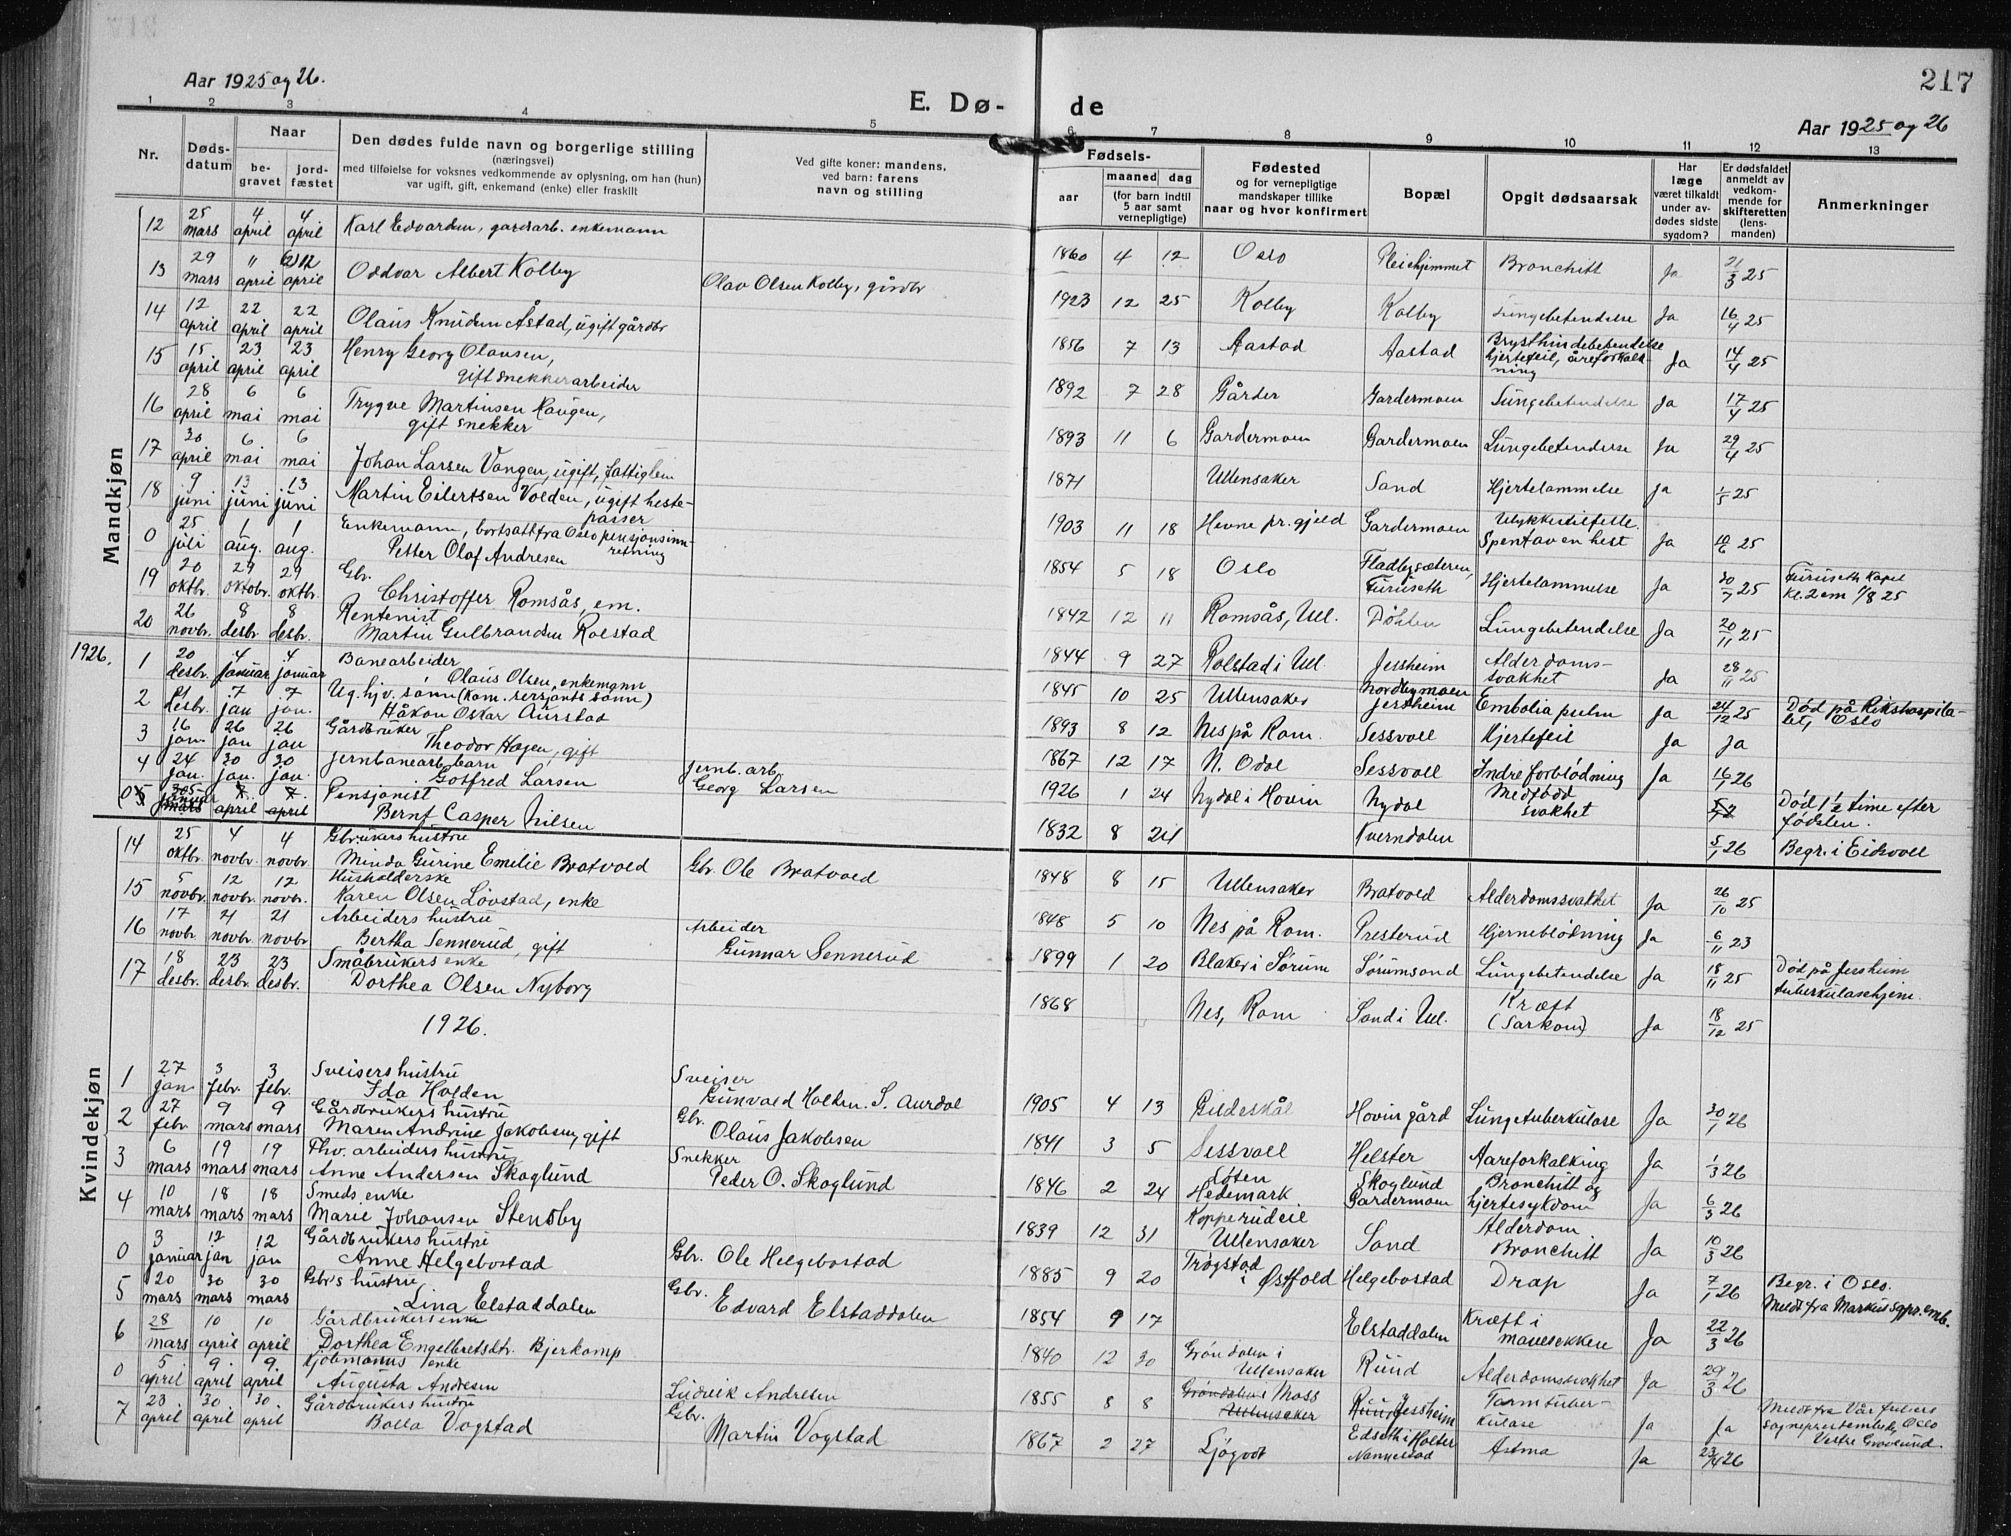 Aar 1925 og 26.
E. Dø-
de
217
Aar 1925 og 26
1 2 3 4 5 6 7 8 9 10 11 12 13
Nr.
Døds-
datum
Naar
be-
gravet
jord-
fæstet
Den dødes fulde navn og borgerlige stilling
(næringsvei)
med tilføielse for voksnes vedkommende av oplysning, om han (hun)
var ugift, gift, enkemand (enke) eller fraskilt
Ved gifte koner: mandens,
ved barn: farens
navn og stilling
Fødsels-
aar
maaned dag
(for barn indtil
5 aar samt
vernepligtige)
Fødested
og for vernepligtige
mandskaper tillike
naar og hvor konfirmert
Bopæl
Opgit dødsaarsak
Har
læge
været tilkaldt
under av-
dødes sidste
sygdom?
Er dødsfaldet
anmeldt av
vedkom-
mende for
skifteretten
(lens-
manden)
Anmerkninger
Mandkjøn
12 25 mars 4 april 4 april Karl Edvardsen, gardsarb. enkemann 1860 4 12 Oslo Pleiehjemmet Bronchitt Ja 21/3 25
13 29 mars 11 april 12 april Oddvar Albert Kolby Olav Olsen Kolby, gårdbr 1923 12 25 Kolby Kolby Lungebetendelse Ja 16/4 25
14 12 april 22 april 22 april Olaus Knudsen Åstad, ugift gårdbr 1856 7 13 Aastad Aastad Brysthindebetendelse
hjertefeil, åreforkalk-
ning Ja 14/4 25
15 15 april 23 april 23 april Henry Georg Olausen,
gift snekkerarbeider 1892 7 28 Gårder Gardermoen Lungebetendelse Ja 17/4 25
16 28 april 6 mai 6 mai Trygve Martinsen Haugen,
gift snekker 1893 11 6 Gardermoen Gardermoen Lungebetendelse Ja 29/4 25
17 30 april 6 mai 6 mai Johan Larsen Vangen, ugift, fattiglem 1871 Ullensaker Sand Hjertelammelse Ja 1/5 25
18 9 juni 13 juni 13 juni Martin Eilertsen Volden, ugift heste-
passer 1903 11 18 Hevne pr. gjeld Gardermoen Ulykkestilfelle.
Spent av en hest Ja 10/6 25
0 25 juli 1 aug. 1 aug. Enkemann, bortsatt fra Oslo pensjonsinn-
retning
Petter Olaf Andresen 1854 5 18 Oslo Fladbysæteren,
Furuseth Hjertelammelse Ja 30/7 25 Furuseth Kapel
kl. 2 em 1/8 25
19 20 oktbr. 29 oktobr. 29 oktbr. Gbr.
Christoffer Romsås, em. 1842 12 11 Romsås, Ull. Døhlen Lungebetendelse Ja 20/11 25
20 26 novbr. 8 desbr. 8 desbr. Rentenist
Martin Gulbrandsen Rolstad 1844 9 27 Rolstad i Ull Jessheim Alderdoms-
svakhet Ja 28/11 25
1926.
1 20 desbr. 4 januar 4 januar Banearbeider
Olaus Olsen, enkemann 1845 10 25 Ullensaker Nordbymoen
Jessheim Embolia pulm Ja 24/12 25 Død på Rikshospita-
let, Oslo
2 desbr. 7 jan 7 jan. Ug. hjv. sønn (kom. sersjants sønn)
Håkon Oskar Aurstad 1893 8 12 Nes på Rom. Sessvoll Hjertefeil Ja Ja
3 16 jan. 26 jan 26 jan Gårdbruker
Theodor Hagen, gift 1867 12 17 N. Odal Sessvoll Indre forblødning Ja 16/1 26
4 24 jan. 30 jan. 30 jan. Jernbanearb. barn
Gotfred Larsen Jernb. arb.
Georg Larsen 1926 1 24 Nydal i Hovin Nydal Medfødd
svakhet Død 1½ time efter
fødslen.
0 5 januar april april Pensjonist
Bernt Casper Nilsen 1832 8 24 Kverndalen 5/1 26 Begr. i Eidsvoll
Kvindekjøn
14 25 oktbr. 4 novbr. 4 novbr. Gbrukers hustru
Minda Gurine Emilie Bratvold Gbr. Ole Bratvold 1848 8 15 Ullensaker Bratvold Alderdomssvakhet Ja 26/10 25
15 5 novbr. 12 novbr. 12 novbr. Husholderske
Karen Olsen Løvstad, enke 1848 5 10 Nes på Rom. Presterud Hjerneblødning Ja 6/11 25
16 17 novbr 21 novbr 21 novbr Arbeiders hustru
Bertha Sennerud, gift Arbeider
Gunnar Sennerud 1899 1 20 Blaker i Sørum Sørumsand Lungebetendelse Ja 18/11 25 Død på Jessheim
tuberkulosehjem.
17 18 desbr. 23 desbr. 23 desbr. Småbrukers enke
Dorthea Olsen Nyborg 1868 Nes, Rom Sand i Ull. Kræft
(Sarkom) Ja 18/12 25
1926.
1 27 jan 3 febr. 3 febr. Sveisers hustru
Ida Holden Sveiser
Gunvald Holden. S. Aurdal 1905 4 13 Gildeskål Hovin gård Lungetuberkulose Ja 30/1 26
2 27 febr 9 mars 9 mars Gårdbrukers hustru
Maren Andrine Jakobsen, gift Gbr.
Olaus Jakobsen 1841 3 5 Sessvoll Helster Aareforkalkning Ja 1/3 26
3 6 mars 19 mars 19 mars Fhv. arbeiders hustru
Anne Andersen Skoglund Snekker
Peder O. Skoglund 1846 2 24 Løten
Hedemark Skoglund
Gardermoen Bronchitt og
hjertesykdom Ja 6/3 26
4 10 mars 18 mars 18 mars Smeds enke
Marie Johansen Stensby 1839 12 31 Kopperudeie
Ullensaker Sand Alderdom
Bronchitt Ja 10/3 26
0 3 januar 12 jan 12 jan Gårdbrukers hustru
Anne Helgebostad Gbr. Ole Helgebostad 1885 9 20 Trøgstad
i Østfold Helgebostad Drap Ja 7/1 26 Begr. i Oslo.
Meldt fra Markus sgpr. emb.
5 20 mars 30 mars 30 mars Gbr's hustru
Lina Elstaddalen Gbr.
Edvard Elstaddalen 1854 9 17 Elstaddalen Kræft i
mavesekken Ja 22/3 26
6 28 mars 10 april 10 april Gårdbrukers enke
Dorthea Engelbretsdtr. Bjerkamp 1840 12 30 Grøndalen i
Ullensaker Rund Alderdomssvakhet Ja 29/3 26
0 5. april 9. april 9. april Kjøbmanns enke
Augusta Andresen Ludvik Andresen 1855 8 8 Grøndalen i Moss
Ullensaker Rund Jessheim Tarmtuber-
kulose Ja Ja Meldt fra Vår frelsers
sogneprestembede, Oslo
Vestre Gravlund.
7 23. april 30 april 30. april Gårdbrukers hustru
Bolla Vogstad Gbr.
Martin Vogstad 1867 2 27 Edseth i Holter
Nannestad Astma Ja 23/4 26